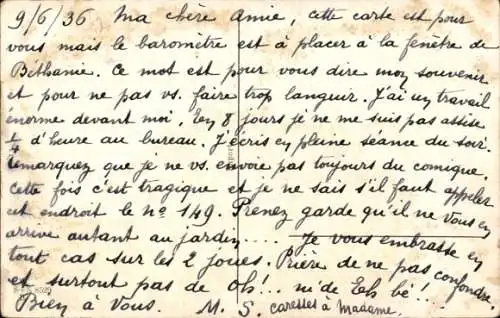 9/6/36 Ma chère Amie, cette carte est pour
vous mais le baromètre est à placer à la fenêtre de
Béthanie. Ce mot est pour vous dire mon souvenir
et pour ne pas vs. faire trop languir. J'ai un travail
énorme devant moi. En 8 jours je ne me suis pas assise
1/4 d'heure au bureau. J'écris en pleine séance du soir.
Remarquez que je ne vs. envoie pas toujours du comique.
Cette fois c'est tragique et je ne sais s'il faut appeler
cet endroit le nº 149. Prenez garde qu'il ne vous en
arrive autant au jardin.... Je vous embrasse en
tout cas sur les 2 joues. Prière de ne pas confondre
et surtout pas de Oh!... ni de Eeh bé!...
Bien à Vous. M. S. caresses à Madame.